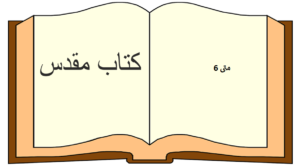 کتاب مقدس
متی 6